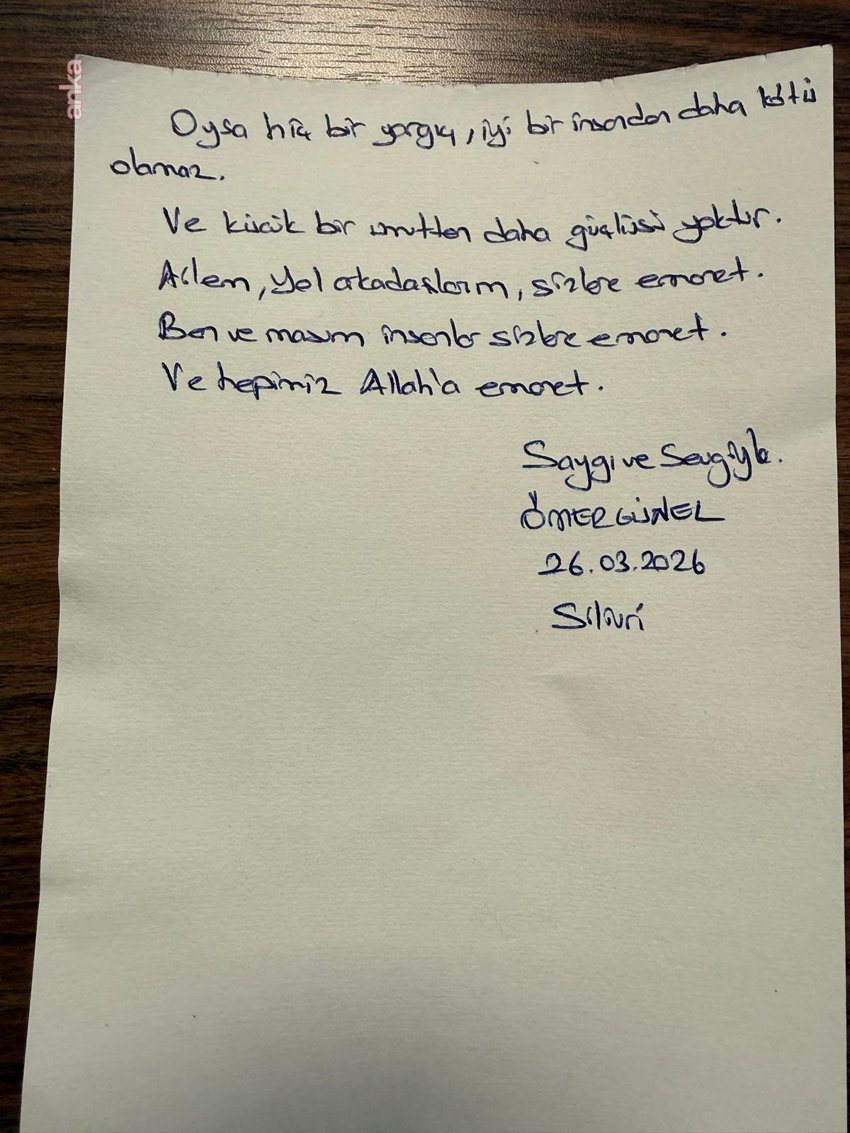 anka
Oysa hiç bir yargıç, iyi bir insandan daha kötü
olamaz.
Ve küçük bir umutten daha güçlüsü yoktur.
Ailem, yol arkadaşlarım, sizlere emanet.
Ben ve masum insanlar sizlere emanet.
Ve hepimiz Allah'a emanet.
Saygı ve Sevgiyle.
ÖMER GÜNEL
26.03.2026
Silivri